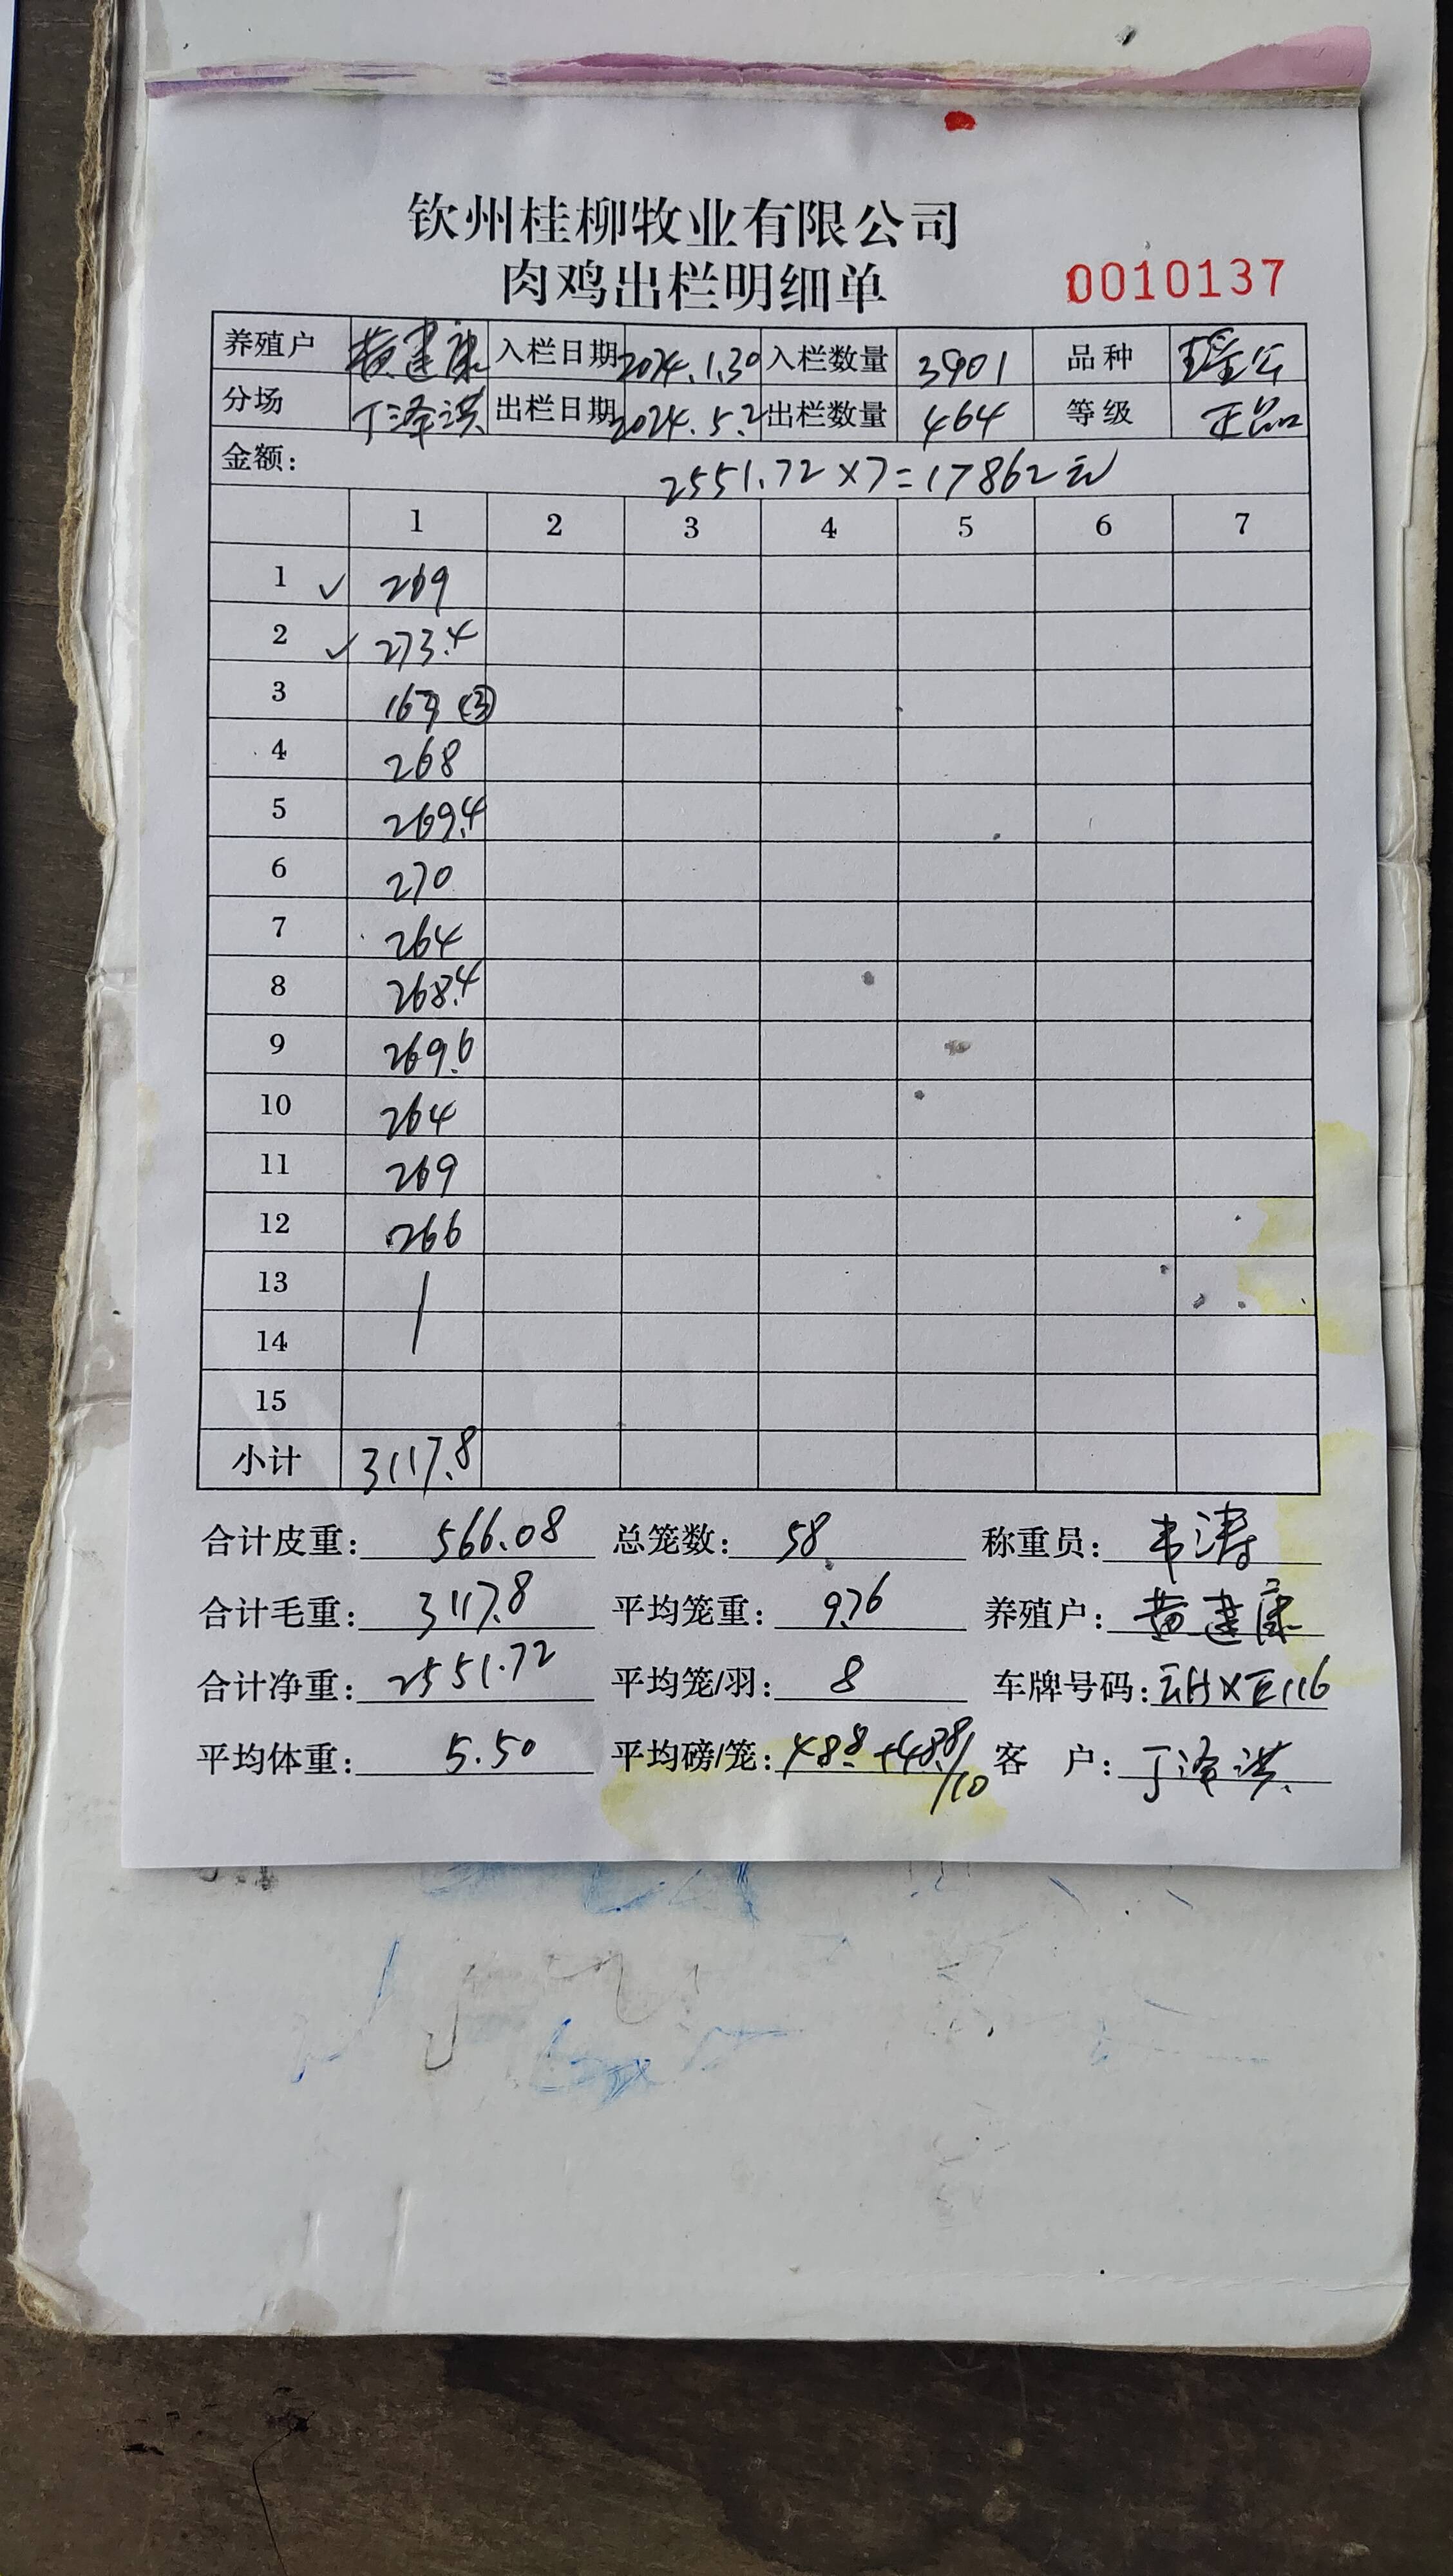 钦州桂柳牧业有限公司
肉鸡出栏明细单
0010137
养殖户 黄建康 入栏日期 2024.1.30 入栏数量 3901 品种 瑶公
分场 丁泽洪 出栏日期 2024.5.2 出栏数量 464 等级 正品
金额: 2551.72×7=17862元
1 2 3 4 5 6 7
1 ✓ 269
2 ✓ 273.4
3 167 (③)
4 268
5 269.4
6 270
7 264
8 268.4
9 269.6
10 264
11 269
12 266
13
14
15
小计 3117.8
合计皮重: 566.08 总笼数: 58 称重员: 韦涛
合计毛重: 3117.8 平均笼重: 9.76 养殖户: 黄建康
合计净重: 2551.72 平均笼/羽: 8 车牌号码:
平均体重: 5.50 平均磅/笼: 48.8+48.8/10 客 户: 丁泽洪